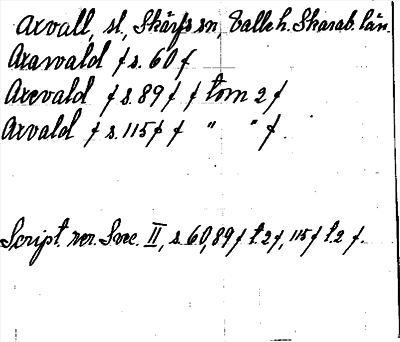 Arvall, sl, Skärfs sn, Valle h. Skarab. län.
Arawald f s. 60 f
Arevald f s. 89 f f tom 2 f
Arvald f s. 115 f f " " f.
Script. rer. Svec. II, s. 60, 89 f t. 2 f, 115 f t. 2 f.